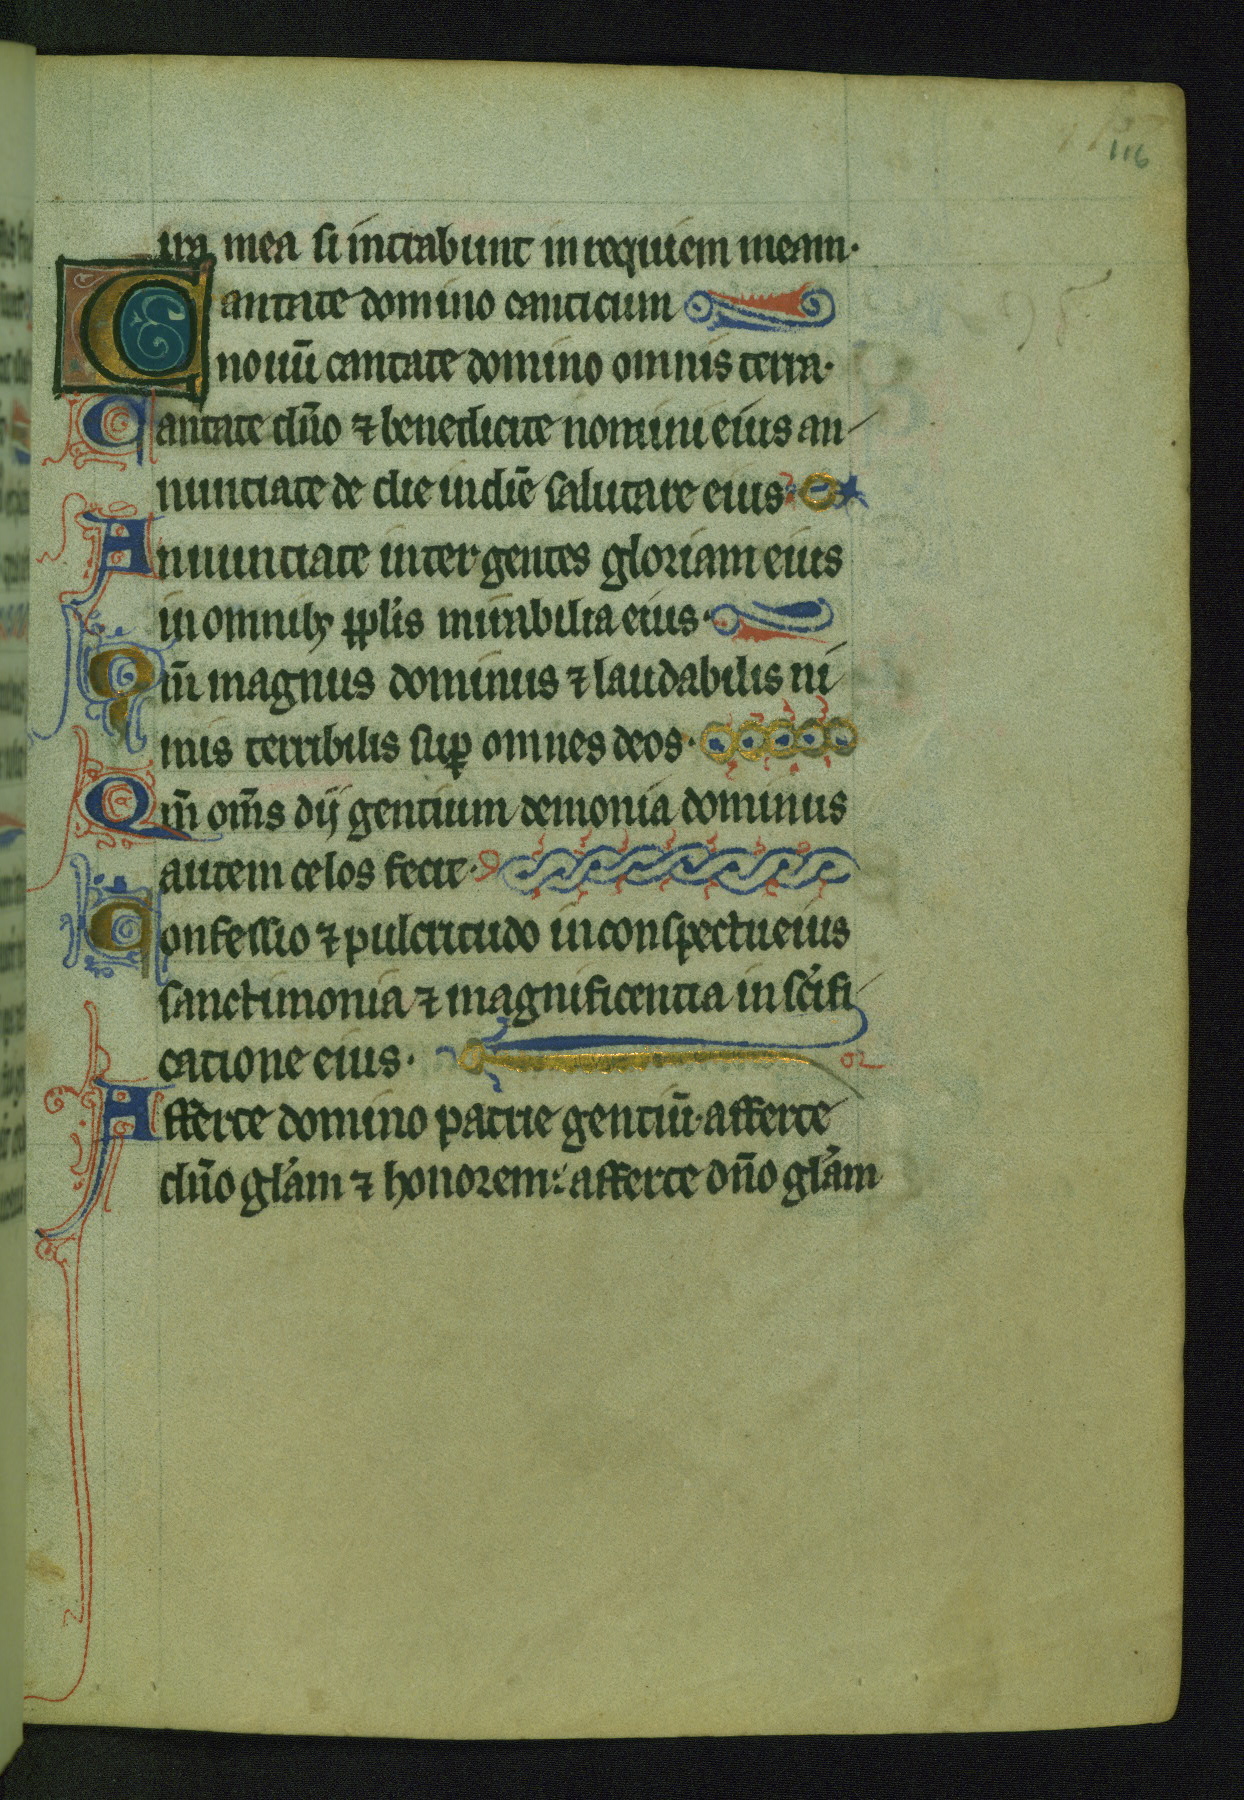 116
ira mea si intrabunt in requiem meam·
Cantate domino canticum
nouū cantate domino omnis terra·
Cantate dn̄o ⁊ benedicite nomini eius an
nunciate de die in diē salutare eius·
Annunciate inter gentes gloriam eius
in omnibꝫ ppl̄is mirabilia eius·
Qm̄ magnus dominus ⁊ laudabilis ni
mis terribilis suꝑ omnes deos·
Qm̄ om̄s dij gentium demonia dominus
autem celos fecit·
Confessio ⁊ pulcritudo in conspectu eius
sanctimonia ⁊ magnificentia in sc̄ifi
catione eius·
Afferte domino patrie gentiū·afferte
dn̄o gl̄am ⁊ honorem: afferte dn̄o gl̄am